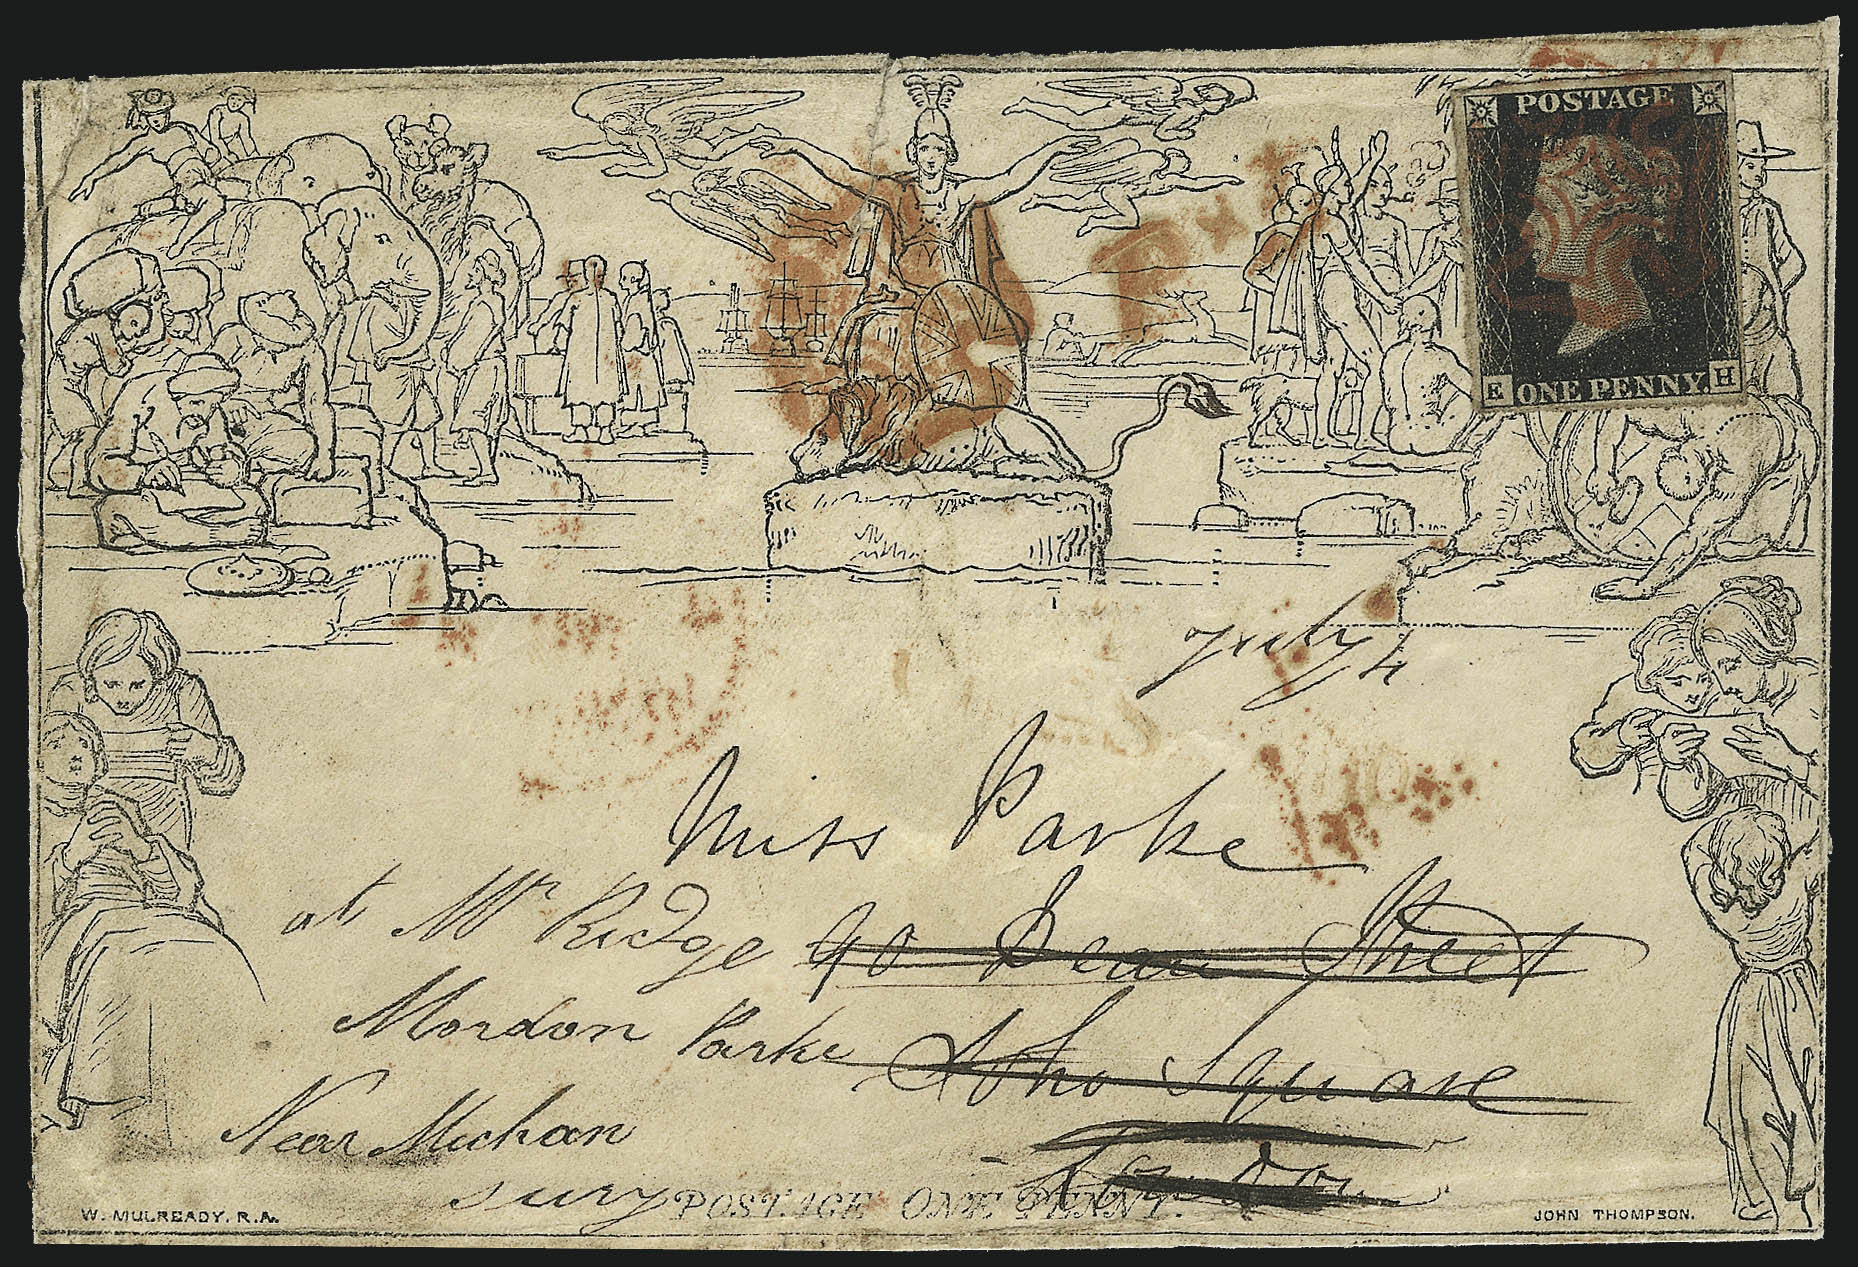 POSTAGE
E ONE PENNY H
July 4
Miss Parke
at Mr Ridge 90 Dean Street
Mordon Parke Soho Square
Near Micham London
Surry
POSTAGE ONE PENNY.
W. MULREADY. R.A.
JOHN THOMPSON.